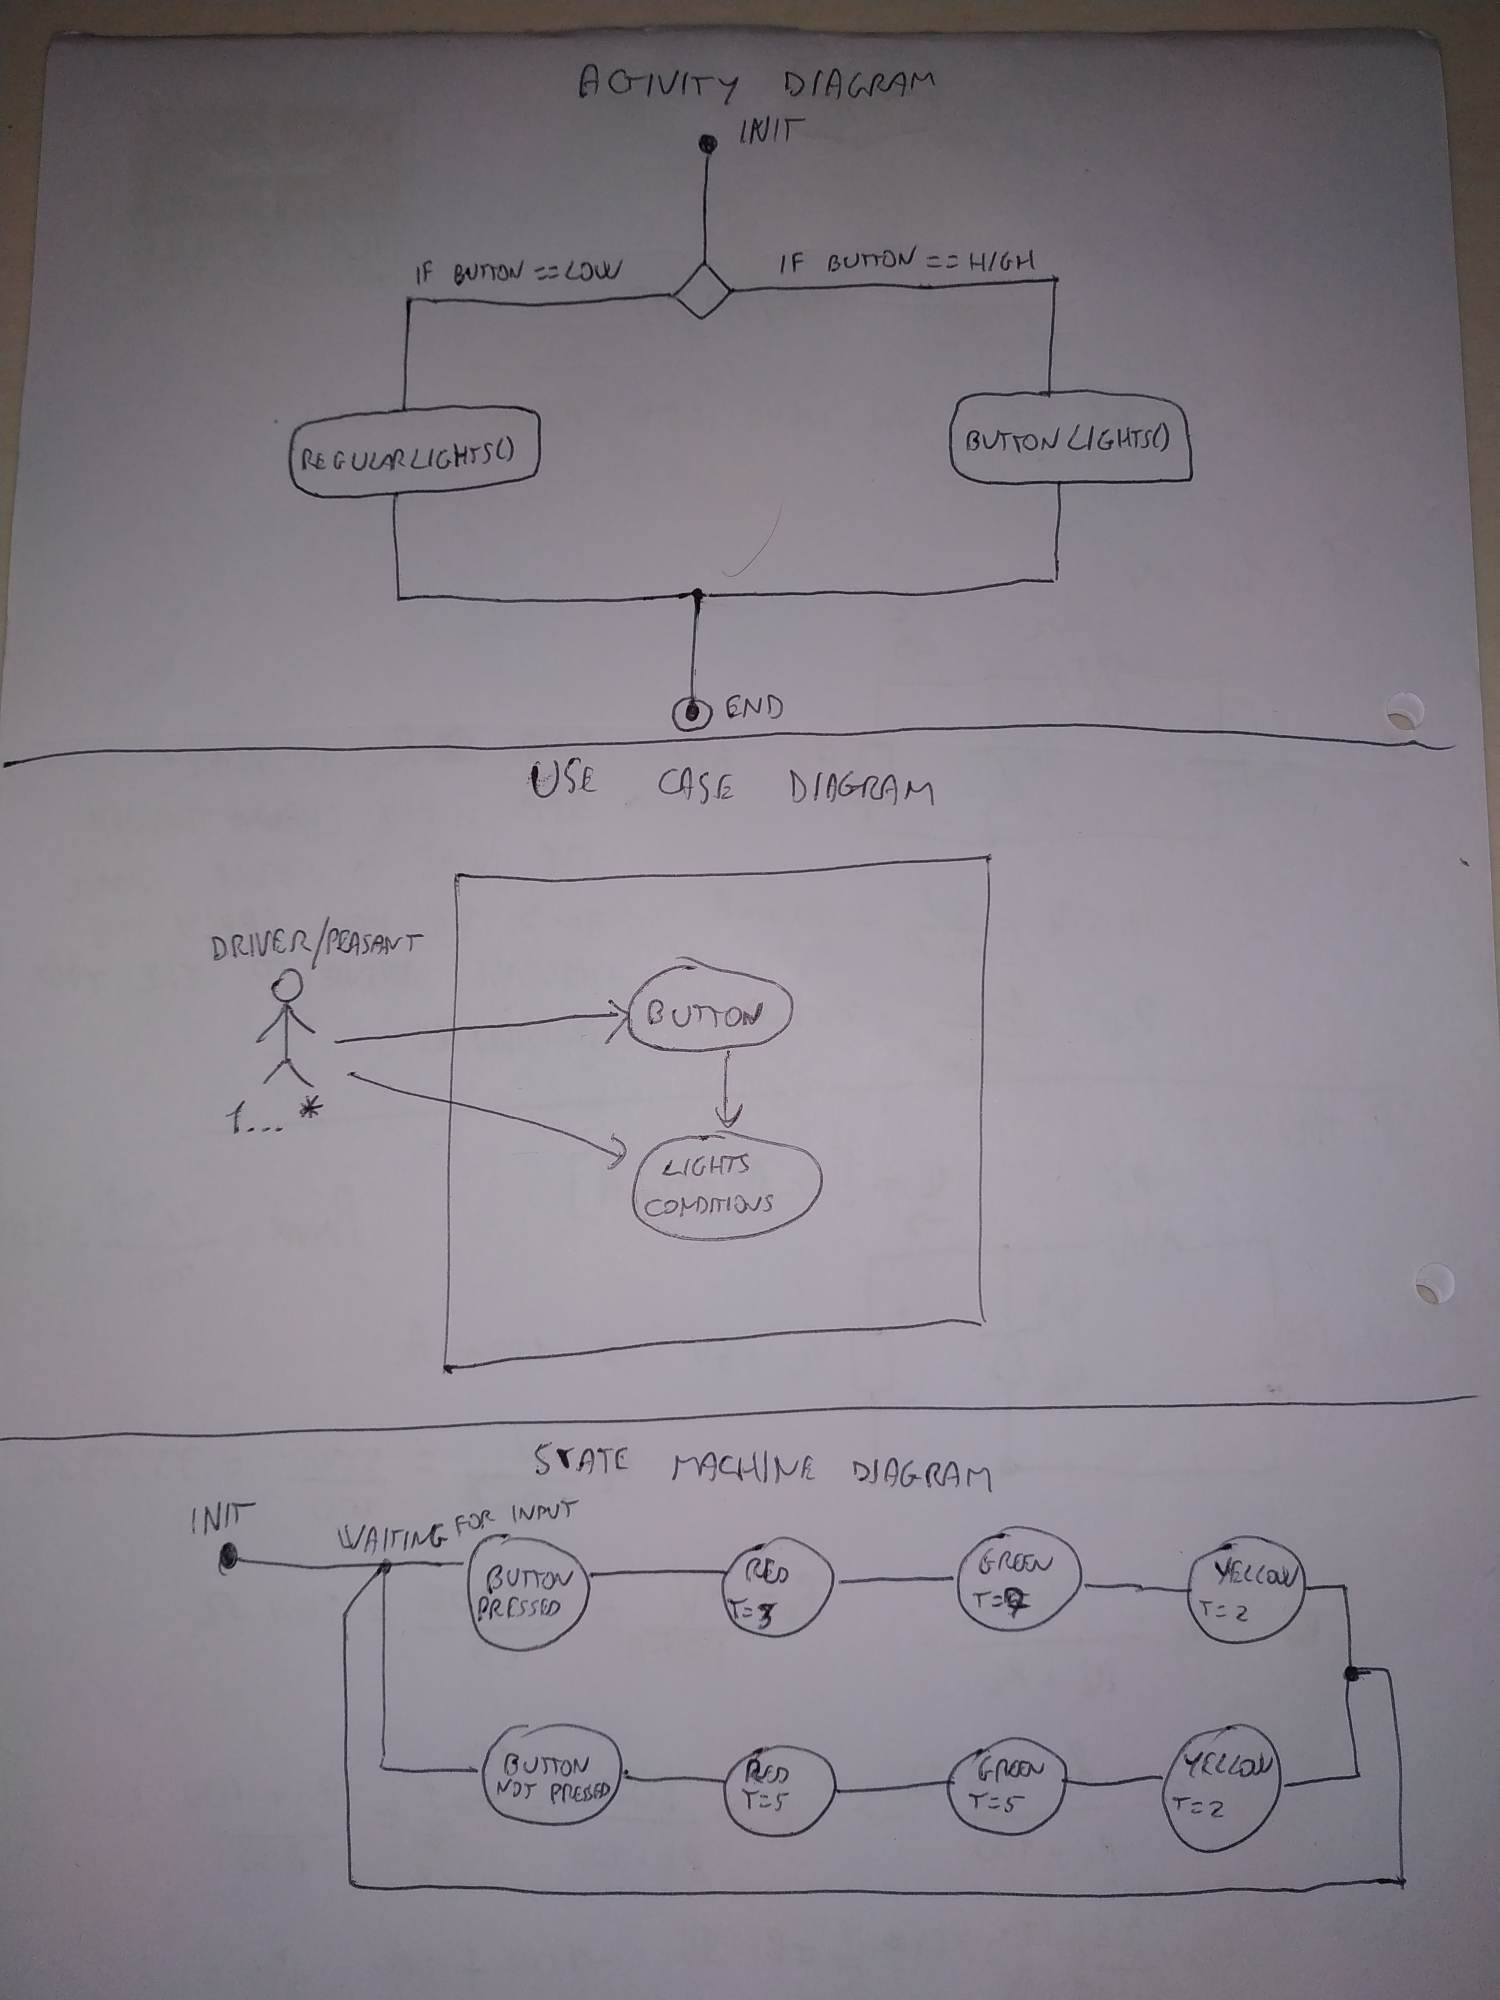 ACTIVITY DIAGRAM
INIT
IF BUTTON == LOW
IF BUTTON == HIGH
REGULARLIGHTS()
BUTTONLIGHTS()
END
USE CASE DIAGRAM
DRIVER/PEASANT
1...*
BUTTON
LIGHTS
CONDITIONS
STATE MACHINE DIAGRAM
INIT
WAITING FOR INPUT
BUTTON
PRESSED
RED
T=3
GREEN
T=7
YELLOW
T=2
BUTTON
NOT PRESSED
RED
T=5
GREEN
T=5
YELLOW
T=2